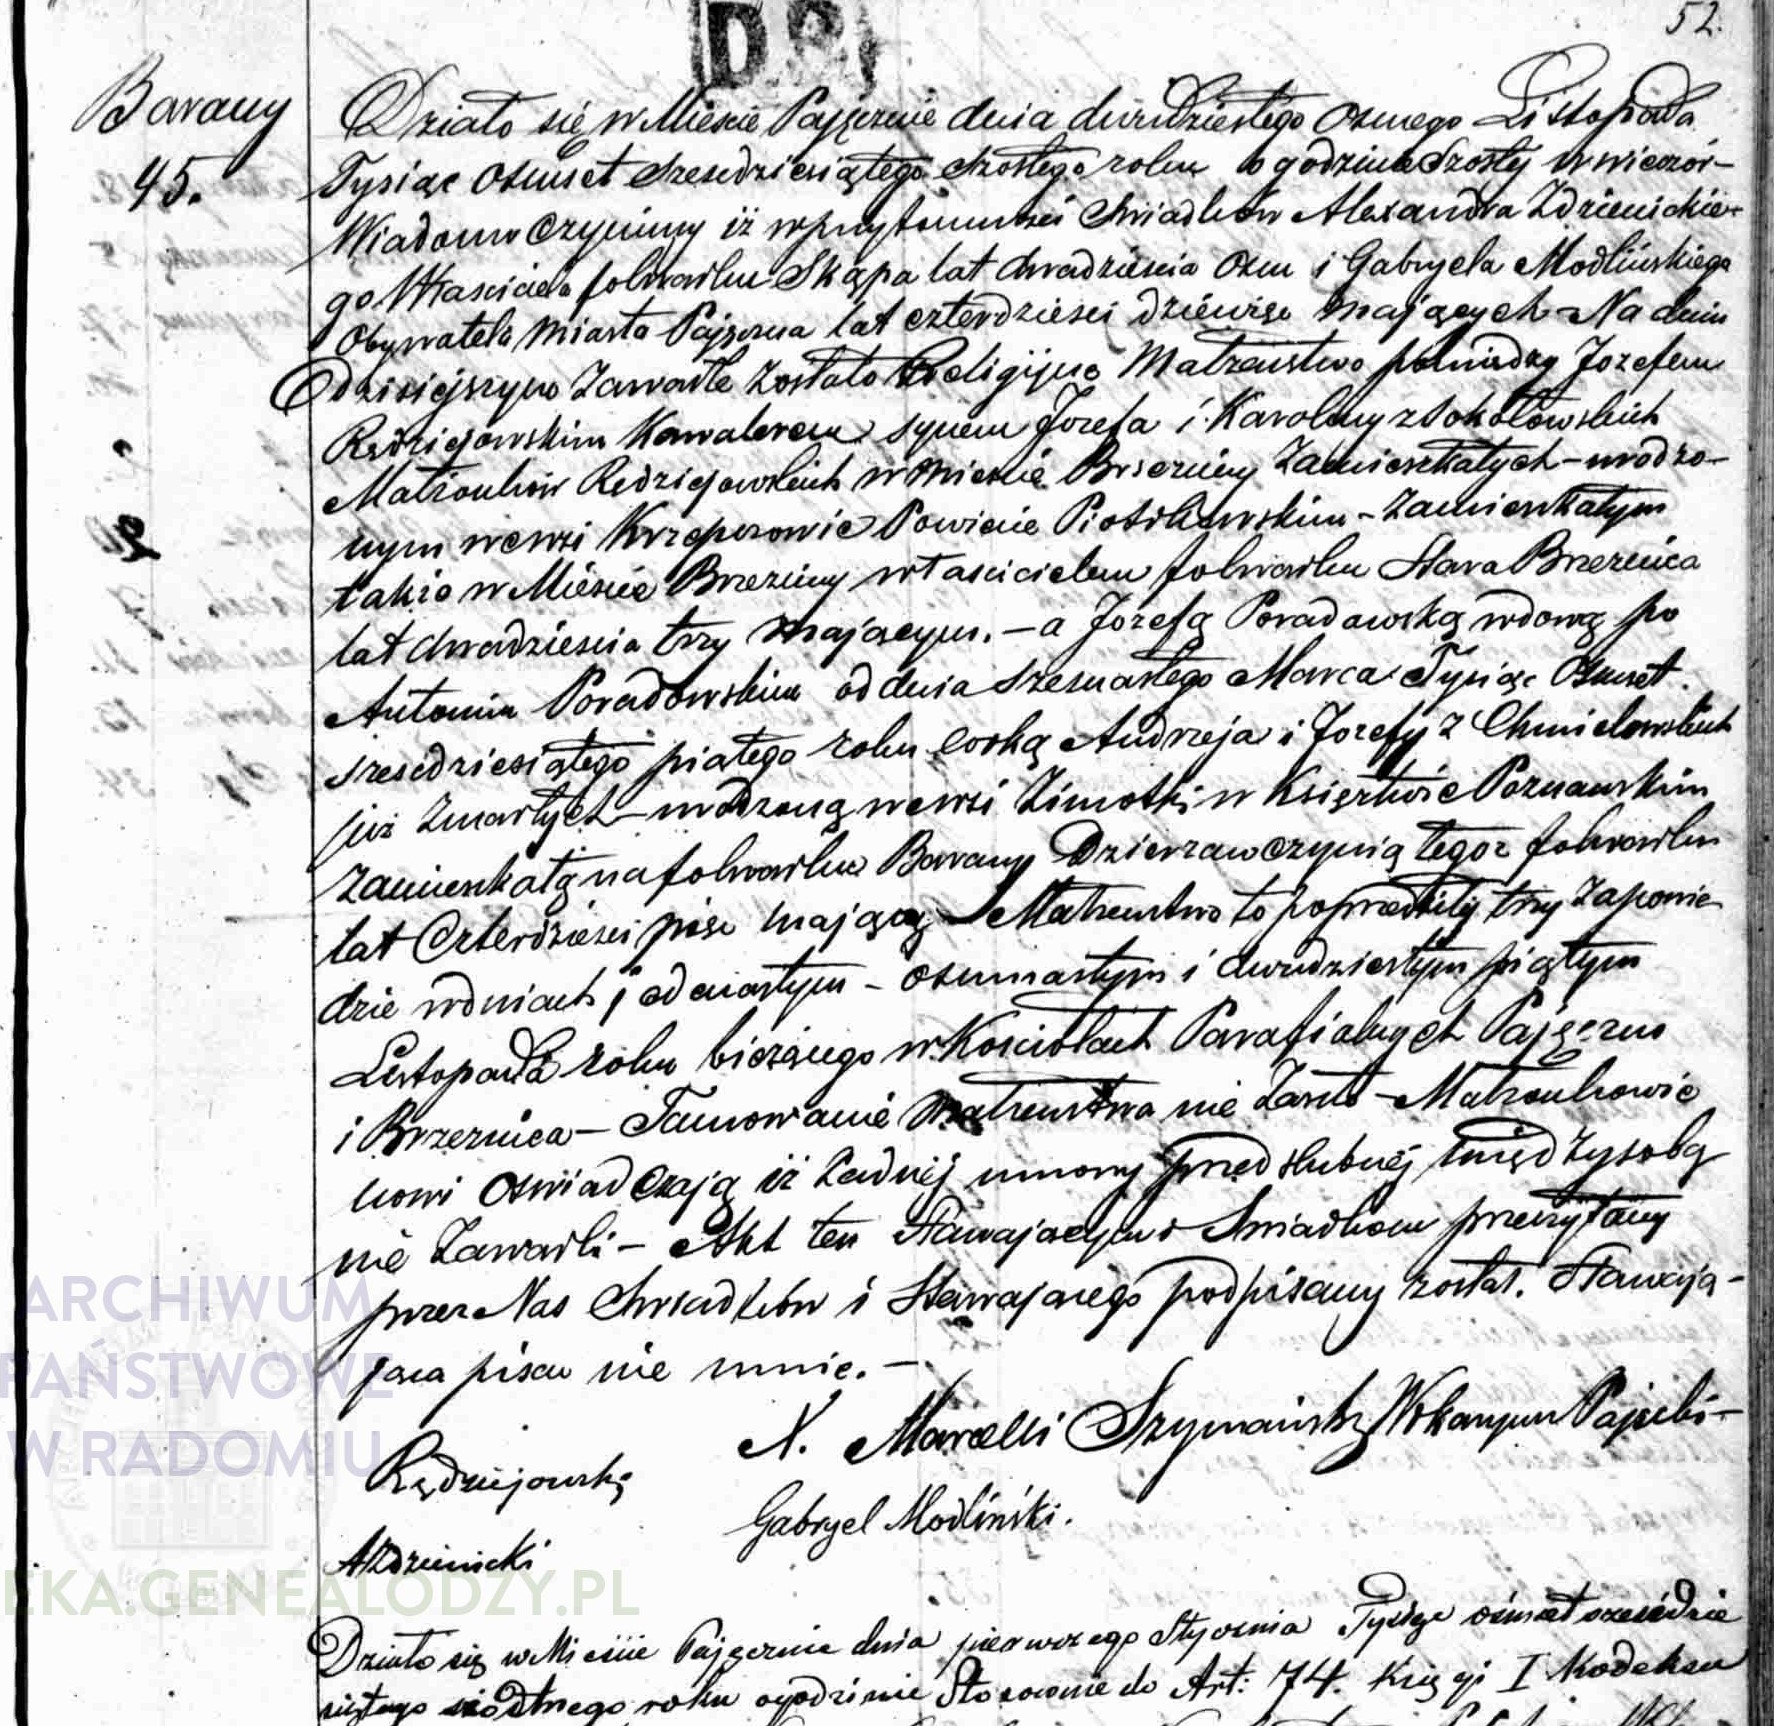 52.
Barany
45.
Działo się w Mieście Pajęcznie dnia dwudziestego Osmego Listopada
Tysiąc Osmset szescdziesiątego szostego roku o godzinie Szostej w wieczór –
Wiadomo Czyniemy iż w przytomnosci Swiadków Alexandra Zdzienickie-
go Własciciela folwarku Skąpa lat dwadziescia Osm i Gabryela Modlińskiego
Obywatela Miasta Pajęczna lat czterdziesci dziewięc mających – Na dniu
Dzisiejszym Zawarte zostało Religijne Małzenstwo pomiedzy Jozefem
Rędziejowskim Kawalerem synem Jozefa i Karoliny z Sokołowskich
Małzonków Rędziejowskich w miescie Brzeziny Zamieszkałych – urodzo-
nym we wsi Powiecie Piotrkowskim – zamieszkałym
także w Miescie Brzeziny włascicielem folwarku Stara Brzeznica
lat dwadziescia trzy mającym. – a Jozefą Poradowską wdową po
Antonim Poradowskim od dnia szesnastego Marca Tysiąc Osmset
szescdziesiątego piątego roku corką Andrzeja i Jozefy z Chmielowskich
już zmarłych – urodzoną we wsi Zimotki w Księztwie Poznanskim
zamieszkałą na folwarku Barany Dzierzawczynią tegoz folwarku
lat Czterdziesci pięc mającą – Małzenstwo to poprzedziły trzy Zapowie-
dzie w dniach jedenastym – osmnastym i dwudziestym piątym
Listopada roku bieżącego w Kosciołach Parafialnych Pajęczno
i Brzeznica – Tamowanie Małzenstwa nie Zaszło – Małzonkowie
nowi Oswiadczają iż Zadnej umowy przedslubnej między sobą
nie Zawarli – Akt ten Stawającym i Swiadkom przeczytany
przez Nas Swiadków i Stawającego podpisany został. Stawają-
jaca pisac nie umie. –
X. Marcelli Szymański Wikaryusz Pajęcki –
Rędziejowski
Gabryel Modliński.
A Zdzienicki
Działo się w Mieście Pajęcznie dnia pierwszego Stycznia Tysiąc ośmset sześćdzie
siątego siodmego roku ogodzinie Stosownie do Art: 74. Księgi I Kodeksu
ARCHIWUM
PAŃSTWOWE
W RADOMIU
EKA.GENEALODZY.PL